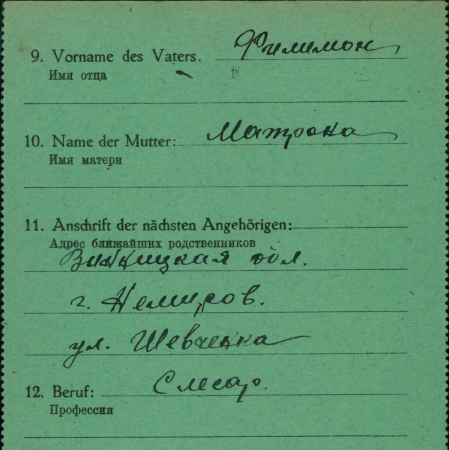 9. Vorname des Vaters. Филимон
Имя отца
10. Name der Mutter: Матрона
Имя матери
11. Anschrift der nächsten Angehörigen:
Адрес ближайших родственников
Винницкая обл.
г. Немиров.
ул. Шевченка
12. Beruf: Слесар.
Профессия